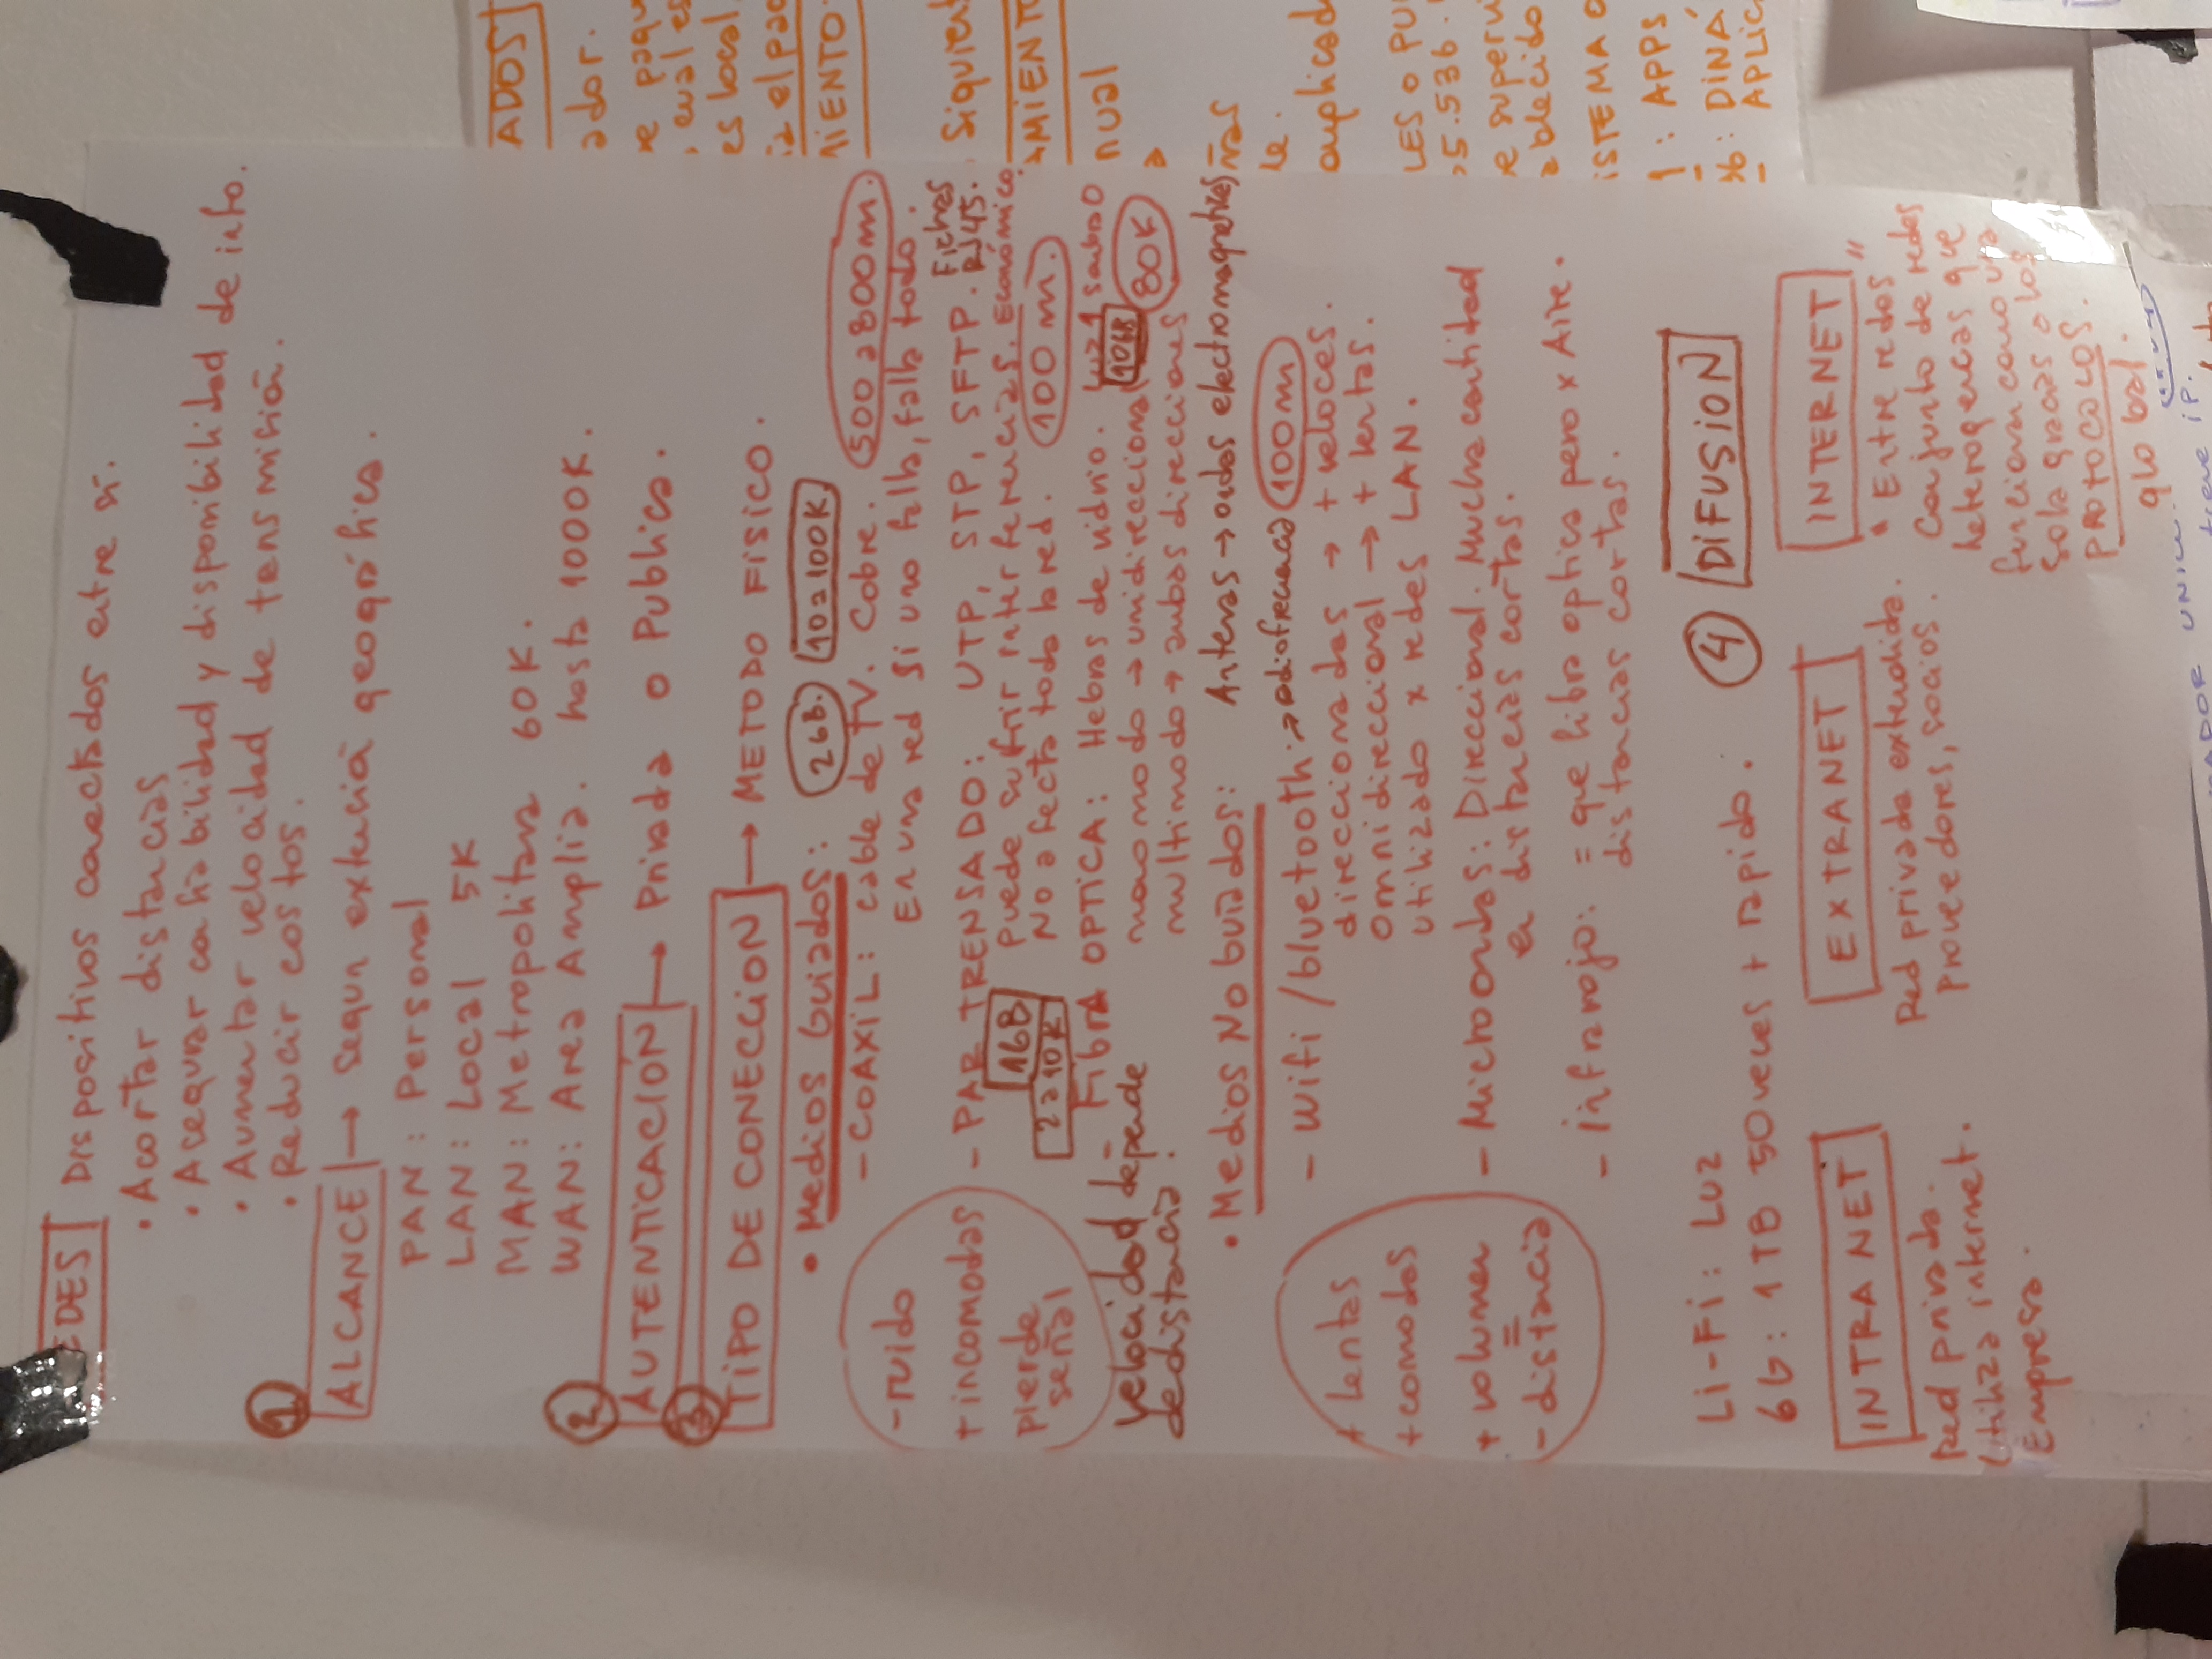 EDES Dispositivos conectados entre si.
• Acortar distancias
• Asegurar confiabilidad y disponibilidad de info.
• Aumentar velocidad de tensmisión.
• Reducir costos.
① ALCANCE → segun extensión geográfica.
PAN: Personal
LAN: Local 5K
MAN: Metropolitana 60K.
WAN: Area Amplia. hasta 1000K.
② AUTENTICACIÓN → Privada o Publica.
③ TIPO DE CONECCION → METODO FISICO.
• Medios Guiados: 2GB. 10a100K.
- COAXIL: cable de TV. Cobre. 500 a 800m.
En una red si uno falla, falla todo.
- ruido
+ incomodas
pierde
señal
- PAR TRENSADO: UTP, STP, SFTP. Fichas RJ45.
1GB Puede sufrir interferencias. Económico
2 a 10K No afecta toda la red. 100 m.
- FibrA OPTICA: Hebras de vidrio. Luz 1 sombra 0
monomodo → unidireccional 10GB 80K
multimodo → ambas direcciones
Velocidad depende
de distancia.
• Medios No Guiados: Antenas → ondas electromagneticas
- Wifi / bluetooth → radiofrecuencia 100m
direccionadas → + veloces.
omnidireccional → + lentas.
utilizado x redes LAN.
+ lentas
+ comodas
+ volumen
=
- distancia
- Microondas: Direccional. Mucha cantidad
en distancias cortas.
- infrarojo: = que fibra optica pero x Aire.
distancias cortas.
Li-Fi: Luz
6G: 1TB 50 veces + rapido.
④ DIFUSION
INTRANET
Red privada.
Utiliza internet.
Empresa.
EXTRANET
Red privada extendida.
Proveedores, socios.
INTERNET
" Entre redes "
Conjunto de redes
heterogeneas que
funcionan como una
sola gracias a los
PROTOCOLOS.
global.
ADOS
ador.
e paqu
, cual es
es local
ia el paq
MIENTO
Siguient
AMIENTO
nual
a
ñas
le.
omplicad
LES o PU
5.536.
e supervi
ablecido
ISTEMA O
1: APPS
36: DINÁ
APLIC
ADOR UNIC
tiene iP.